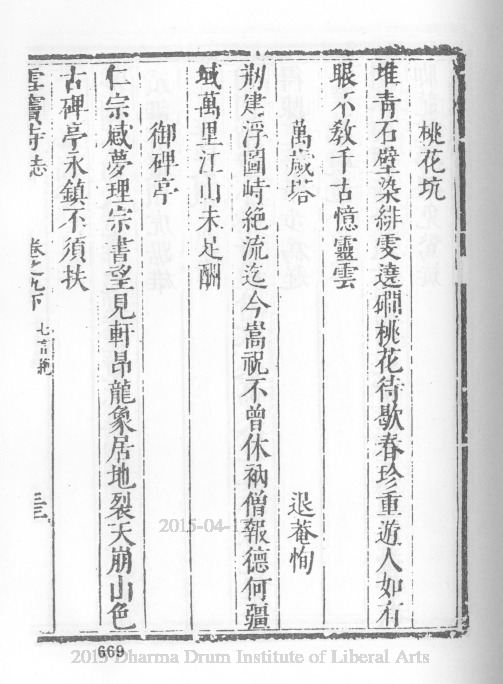 桃花坑
堆青石壁染緋雯遶磵桃花待歇春珍重遊人如有
眼不教千古憶靈雲
萬歲塔　退菴恂
剏建浮圖峙絕流迄今嵩祝不曾休衲僧報德何疆
域萬里江山未足酬
御碑亭
仁宗感夢理宗書望見軒昂龍象居地裂天崩山色
古碑亭永鎮不須扶
雪竇寺志　卷之九下　七言絕
669
2015-04-17
2015 Dharma Drum Institute of Liberal Arts